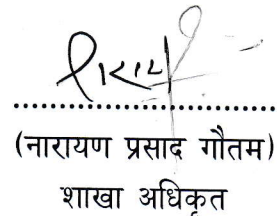 (नारायण प्रसाद गौतम)
शाखा अधिकृत